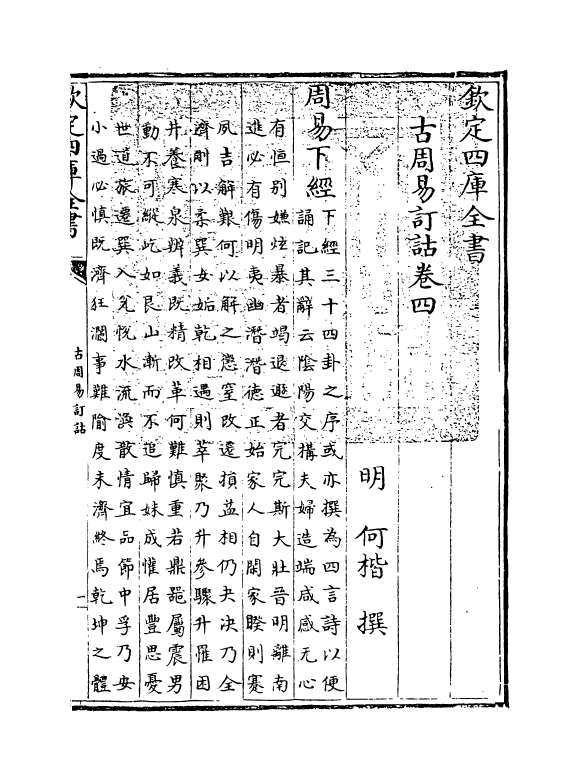 欽定四庫全書
古周易訂詁卷四
明 何楷 撰
周易下經
下經三十四卦之序或亦撰為四言詩以便
誦記其辭云陰陽交構夫婦造端咸感无心
有恒别嫌炫暴者竭退遯者完完斯大壯晉明離南
進必有傷明夷幽潛潛德正始家人自閑家睽則蹇
夙吉解艱何以解之懲窒改遷損益相仍夬决乃全
濟剛以柔巽女姤乾相遇則萃聚乃升參驟升罹困
井養寒泉辨義既精改革何難慎重若鼎器屬震男
動不可縱屹如艮山漸而不迫歸妹成懽居豐思憂
世道旅遷巽入兌悅水流渙散情宜品節中孚乃安
小過必慎既濟狂瀾事難隃度未濟終焉乾坤之體
欽定四庫全書
古周易訂詁
一